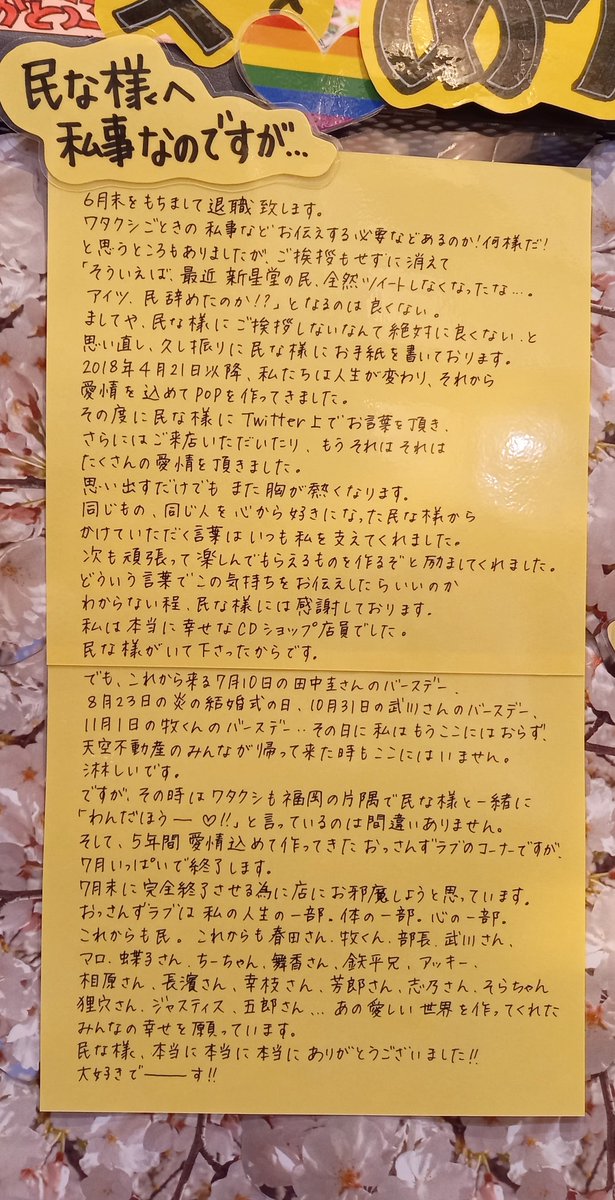 民な様へ
私事なのですが…
6月末をもちまして退職致します。
ワタクシごときの私事などお伝えする必要などあるのか!何様だ!
と思うところもありましたが、ご挨拶もせずに消えて
「そういえば、最近新星堂の民、全然ツイートしなくなったな…。
アイツ、民辞めたのか!?」となるのは良くない。
ましてや、民な様にご挨拶しないなんて絶対に良くない、と
思い直し、久し振りに民な様にお手紙を書いております。
2018年4月21日以降、私たちは人生が変わり、それから
愛情を込めてPOPを作ってきました。
その度に民な様にTwitter上でお言葉を頂き、
さらにはご来店いただいたり、もうそれはそれは
たくさんの愛情を頂きました。
思い出すだけでもまた胸が熱くなります。
同じもの、同じ人を心から好きになった民な様から
かけていただく言葉はいつも私を支えてくれました。
次も頑張って楽しんでもらえるものを作るぞと励ましてくれました。
どういう言葉でこの気持ちをお伝えしたらいいのか
わからない程、民な様には感謝しております。
私は本当に幸せなCDショップ店員でした。
民な様がいて下さったからです。
でも、これから来る7月10日の田中圭さんのバースデー、
8月23日の炎の結婚式の日、10月31日の武川さんのバースデー、
11月1日の牧くんのバースデー‥その日に私はもうここにはおらず、
天空不動産のみんなが帰って来た時もここにはいません。
淋しいです。
ですが、その時はワタクシも福岡の片隅で民な様と一緒に
「わんだほうー♡!!」と言っているのは間違いありません。
そして、5年間愛情込めて作ってきたおっさんずラブのコーナーですが、
7月いっぱいで終了します。
7月末に完全終了させる為に店にお邪魔しようと思っています。
おっさんずラブは私の人生の一部。体の一部。心の一部。
これからも民。これからも春田さん、牧くん、部長、武川さん、
マロ、蝶子さん、ちーちゃん、舞香さん、鉄平兄、アッキー、
相原さん、長濱さん、幸枝さん、芳郎さん、志乃さん、そらちゃん
狸穴さん、ジャスティス、五郎さん…あの愛しい世界を作ってくれた
みんなの幸せを願っています。
民な様、本当に本当に本当にありがとうございました!!
大好きで―――す!!